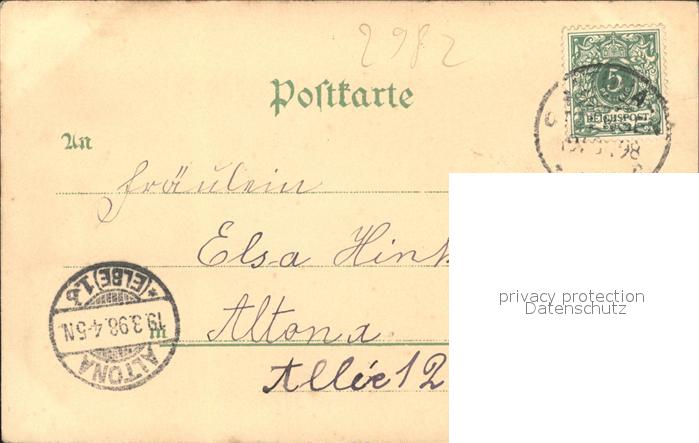 2982
5
REICHSPOST
Postkarte
An
Fräulein
Elsa Hink
in Altona
Allée 12
ALTONA
19.3.98.4-5N.
* (ELBE) 1.
98
privacy protection
Datenschutz